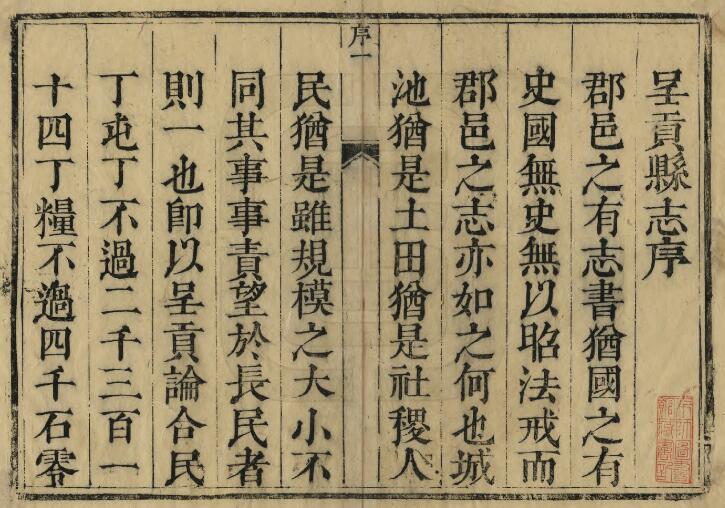 呈貢縣志序
郡邑之有志書猶國之有
史國無史無以昭法戒而
郡邑之志亦如之何也城
池猶是土田猶是社稷人
序一
民猶是雖規模之大小不
同其事事責望於長民者
則一也即以呈貢論合民
丁屯丁不過二千三百一
十四丁糧不過四千石零